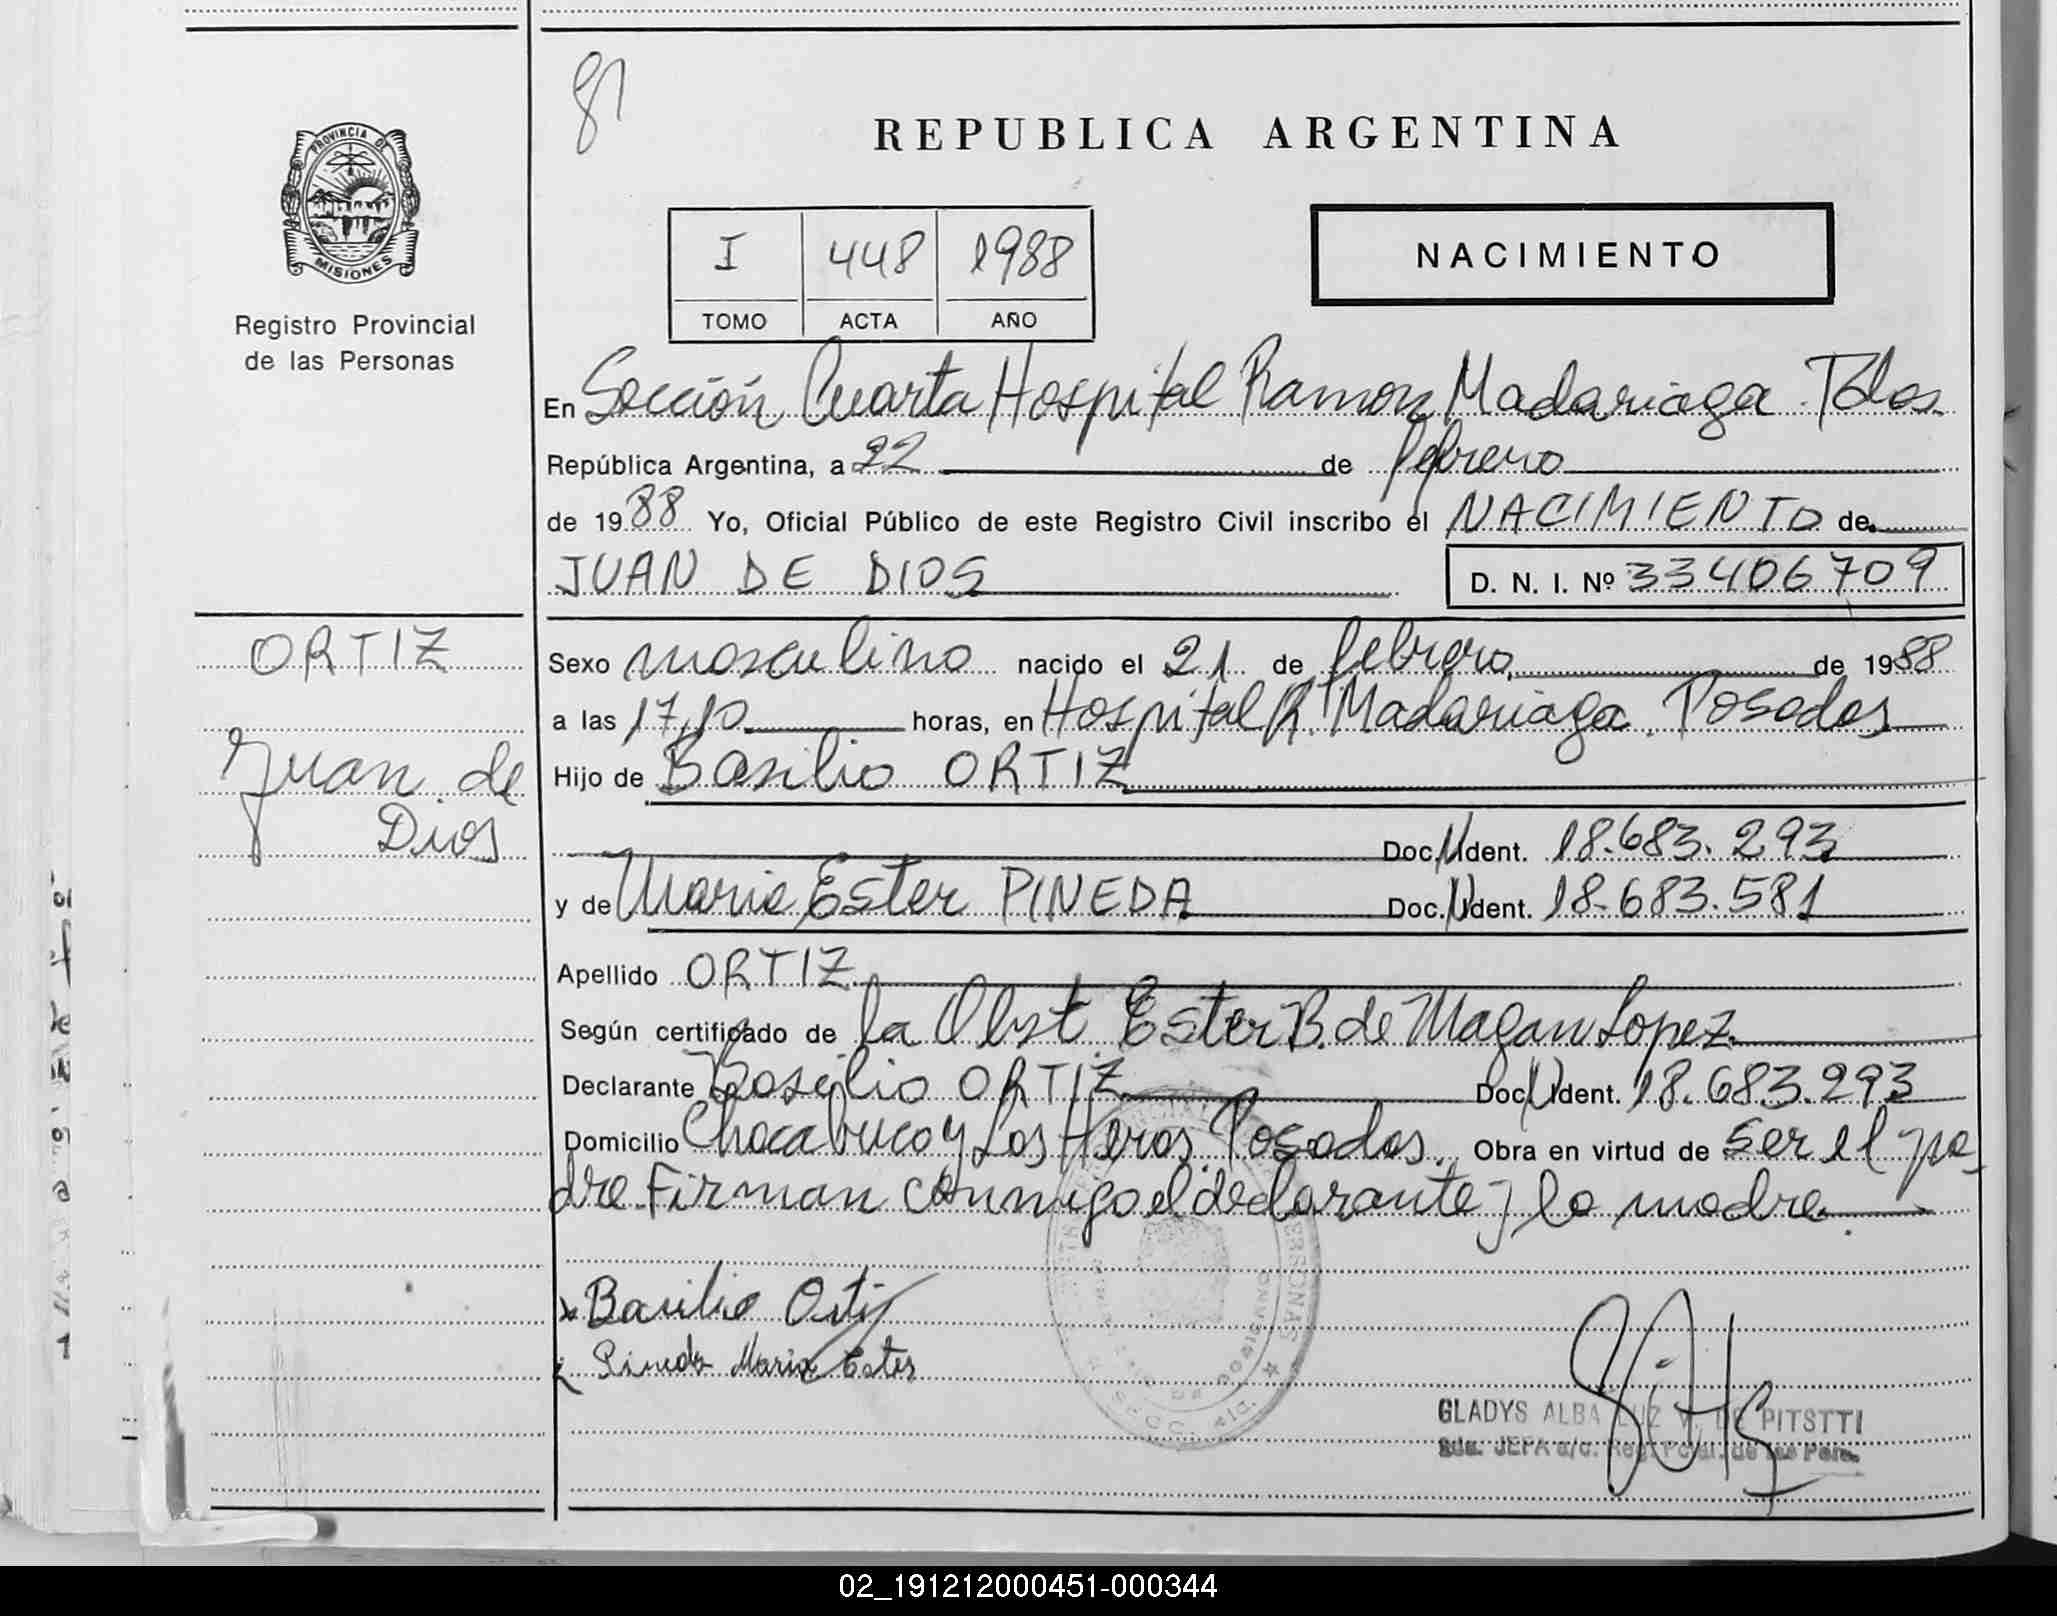 81
REPUBLICA ARGENTINA
PROVINCIA DE
MISIONES
Registro Provincial
de las Personas
I 448 1988
TOMO ACTA AÑO
NACIMIENTO
En Sección Cuarta Hospital Ramon Madariaga Pdas.
República Argentina, a 22 de febrero
de 1988 Yo, Oficial Público de este Registro Civil inscribo el NACIMIENTO de
JUAN DE DIOS
D. N. I. Nº 33406709
ORTIZ
Juan de
Dios
Sexo masculino nacido el 21 de febrero, de 1988
a las 17,10 horas, en Hospital R. Madariaga. Posadas
Hijo de Basilio ORTIZ
Doc. N Ident. 18.683.293
y de Maria Ester PINEDA Doc. N Ident. 18.683.581
Apellido ORTIZ
Según certificado de la Obst. Ester B. de Magan Lopez
Declarante Basilio ORTIZ Doc. N Ident. 18.683.293
Domicilio Chacabuco y Los Heros. Posadas. Obra en virtud de ser el pa-
dre Firman conmigo el declarante y la madre.
Basilio Ortiz
Pineda Maria Ester
GLADYS ALBA LUZ V. DE PITSTTI
JEFA a/c. Reg. Pcial. de las Pers.
02_191212000451-000344